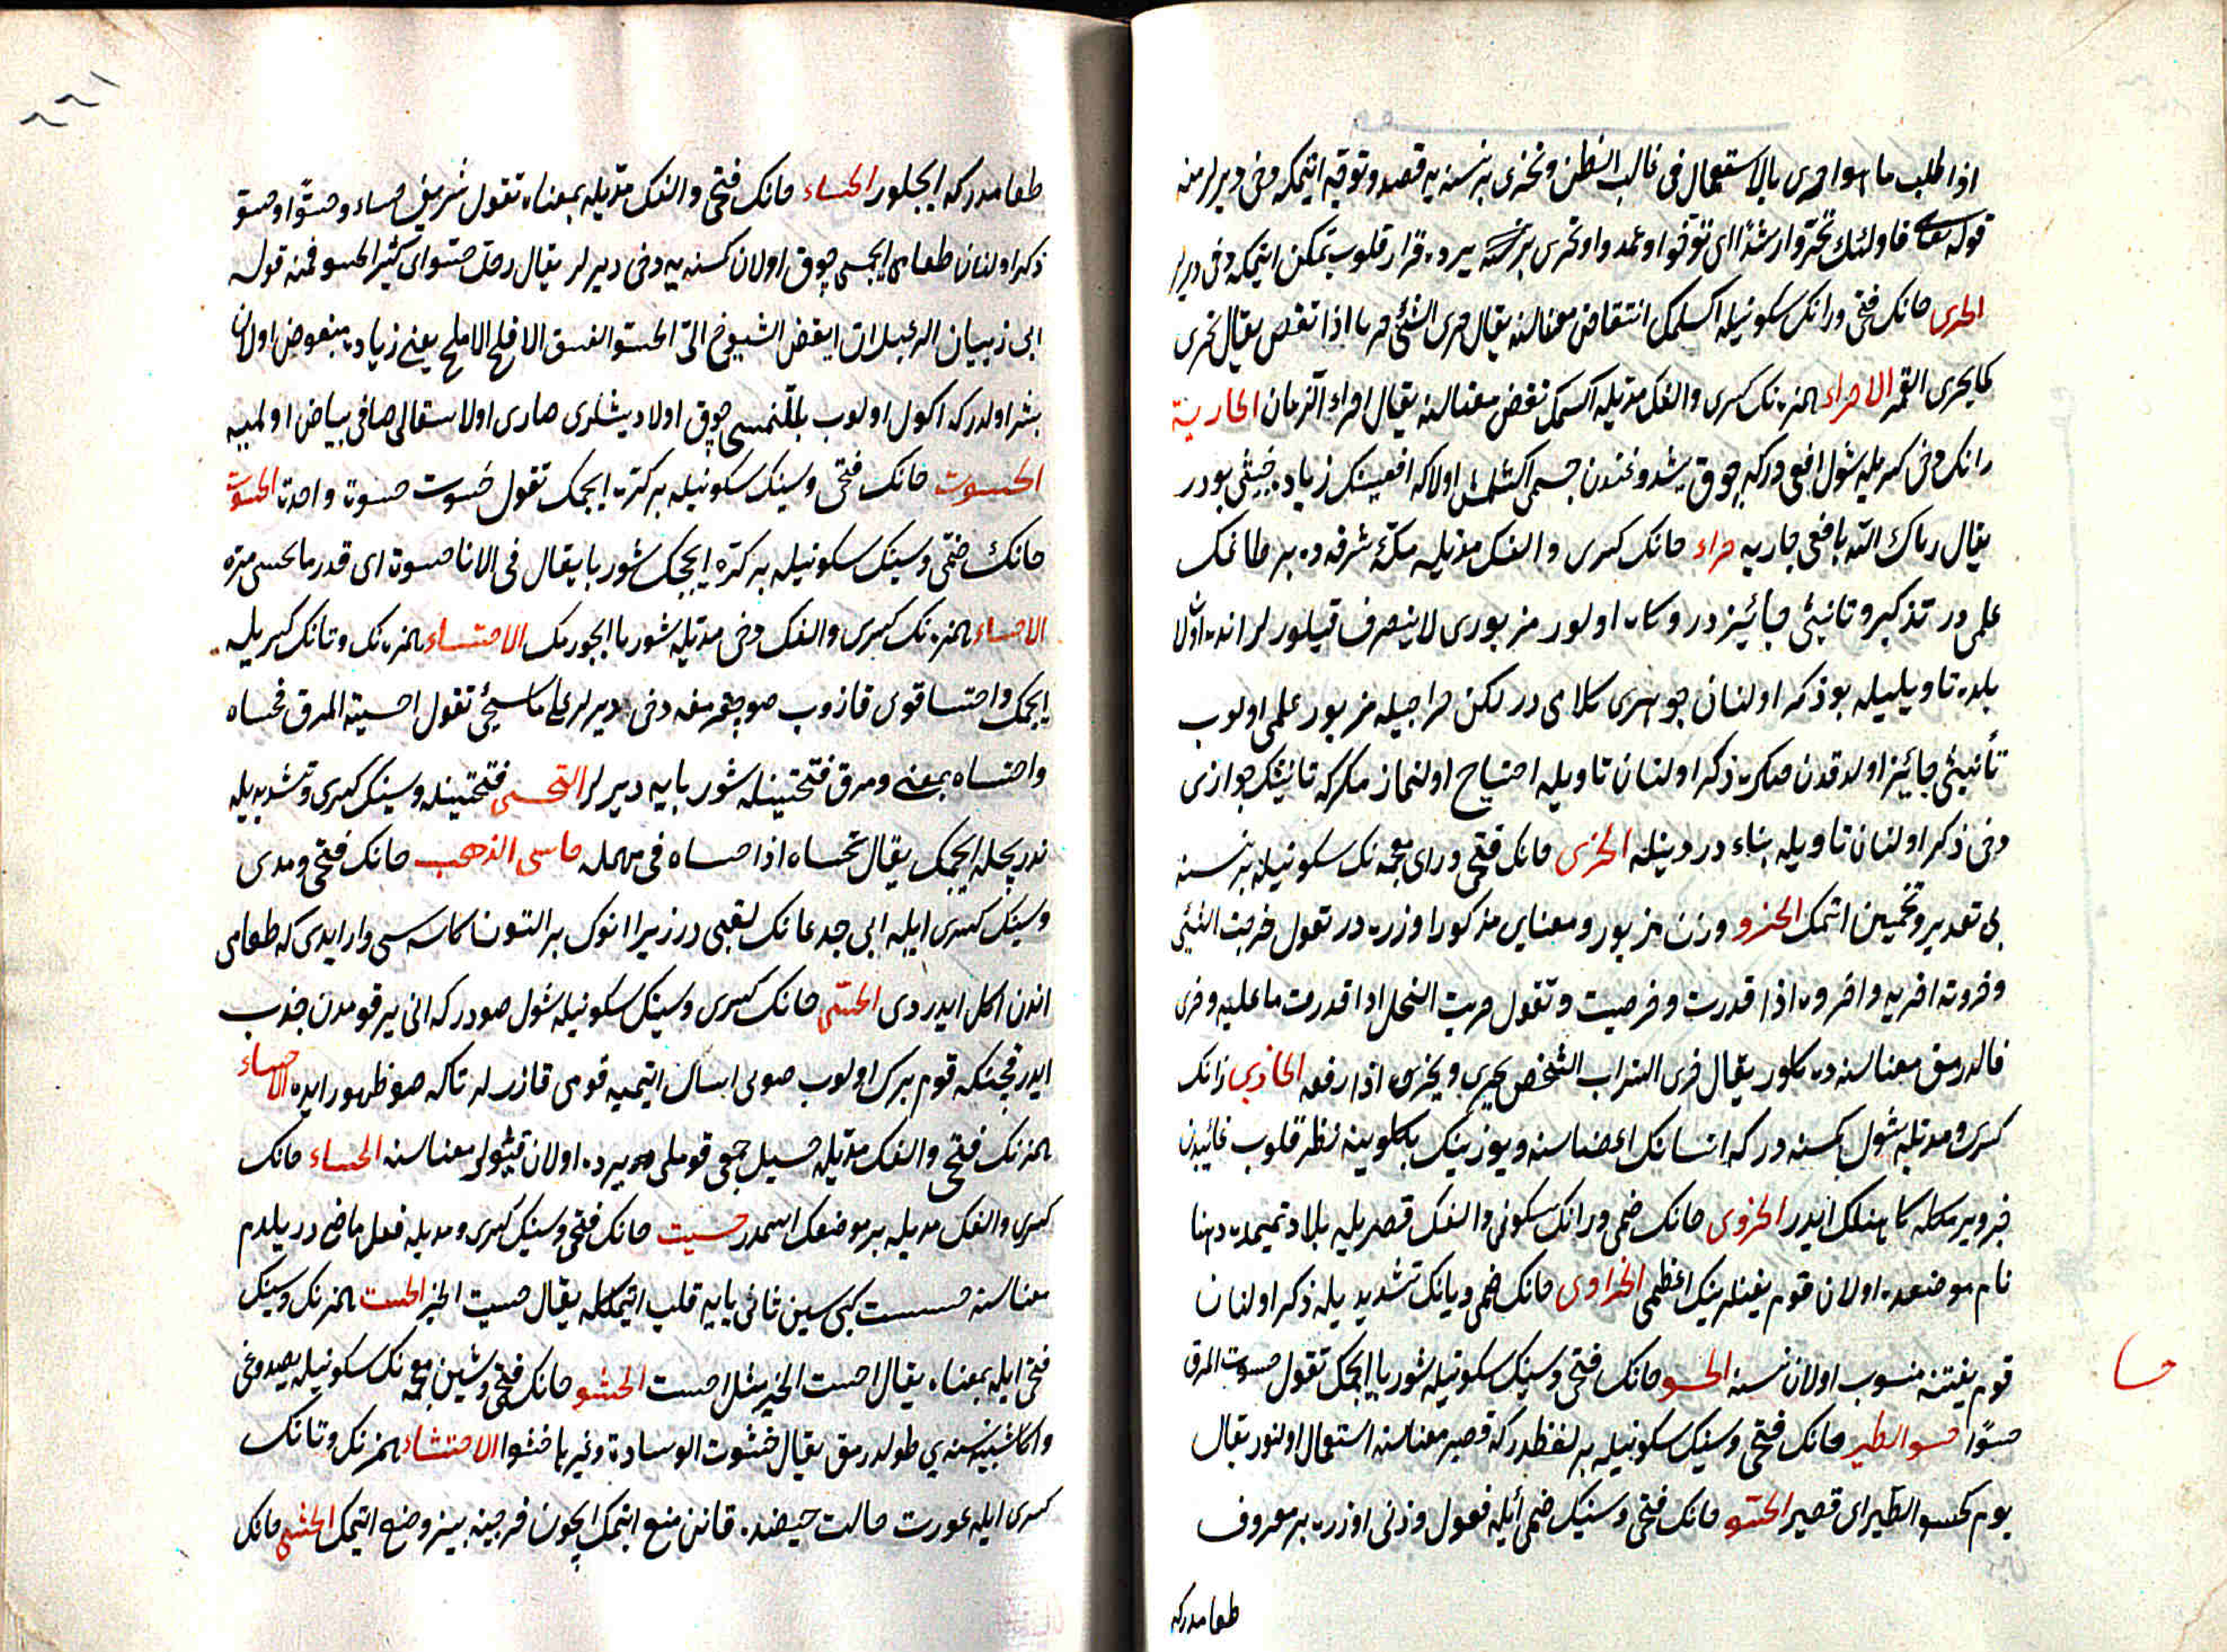 اذا طلب ما هو احرى بالاستعمال فى غالب الظن وتحرى بر نسنه يه قصد وتوقيه اتمكه دخى ديرلر منه
قوله تعالى فاولئك تحروا رشدا اى توخوا وعمدوا وتحرى بر نسنه يرده قرار قلوب تمكن ايتمكه دخى ديرلر
الحرى حانك فتحى ورانك سكونيله اكسلمك انتقاص معناسنه يقال حرى الشئ حريا اذا نقص يقال يحرى
كما يحرى القمر الاحراء همزه نك كسرى والفك مديله اكسمك نقص معناسنه يقال احراه الزمان الحارية
رانك دخى كسريله شول افعى دركه چوق يشدوغندن جسمى اكسلمش اولا كه افعينك زياده خبيثى بودر
يقال رماك الله بافعى حاريه حراء حانك كسرى والفك مديله مكه مشرفه ده بر طاغك
علمى در تذكير وتانيثى جائيزدر وكاه اولور مزبورى لا ينصرف قيلورلر انده اولان
بلده تاويليله بو ذكر اولنان جوهرى كلامى در لكن حرا جبله مزبور علمى اولوب
تأنيثى جائيز اولدقدن صكره ذكر اولنان تاويله احتياج اولنماز مكر كه تانيثك جوازى
دخى ذكر اولنان تاويله بناء در دينله الحزى حانك فتحى وراى معجمه نك سكونيله بر نسنه
يى تقدير وتخمين اتمك الحزو وزن مزبور ومعناى مذكور اوزره در تقول حزيت الشئ
وحزوته احزيه واحزوه اذا قدرت وخرصت وتقول حزيت النخل اذا قدرت ما عليه وحزى
قالدرمق معناسنه ده كلور يقال حزى السراب الشخص يحزيه ويحزوه اذا رفعه الحازى زانك
كسرى ومديله شول كمسنه در كه انسانك اعضاسنه ويوزينك بكلرينه نظر قلوب غائيبدن
خبر ويرمكله كاهنلك ايدر الحزوى حانك ضمى ورانك سكونى والفك قصريله بلاد تميمده دهنا
نام موضعده اولان قوم يغنلرينك اعظمى الحزاوى حانك ضمى ويانك تشديديله ذكر اولنان
قوم يغننه منسوب اولان نسنه الحسو حانك فتحى وسينك سكونيله شوربا ايچمك تقول حسوت المرق
حسوا حسو الطير حانك فتحى وسينك سكونيله بر لفظدر كه قصير معناسنه استعمال اولنور يقال
يوم كحسو الطير اى قصير الحسو حانك فتحى وسينك ضمى ايله فعول وزنى اوزره بر معروف
طعامدر كه
حسا
٢٢١
طعامدر كه ايچلور الحساء حانك فتحى والفك مديله بمعناه تقول شربت حساء وحسوا وحسو
ذكر اولنان طعامى ايچمسى چوق اولان كمسنه يه دخى ديرلر يقال رجل حسو اى كثير الحسو فمنه قوله
ابى ذبيان الرعبل ان ابغض الشيوخ الى الحسو الفسو الاقلح الاملح يعنى زياده مبغوض اولان
بشر اولدر كه اكول اولوب يللنمسى چوق اولا ديشلرى صارى اولا سقالى صافى بياض اولميه
الحسوت حانك فتحى وسينك سكونيله بر كره ايچمك تقول حسوت حسوة واحدة الحسوت
حانك ضمى وسينك سكونيله بر كره ايچجك شوربا يقال فى الانا حسوة اى قدر ما يحسى مرة
الاحساء همزه نك كسرى والفك دخى مديله شوربا ايچورمك الاحتساء همزه نك وتانك كسريله
ايچمك واحتسا قوى قازوب صو چقرمغه دخى ديرلر على ما سيجئ تقول احسيته المرق فحساه
واحتساه بمعنى ومرق فتحتينله شوربايه ديرلر التحسى فتحتينله وسينك كسرى وتشديديله
تدريجله ايچمك يقال تحساه اذا حساه فى مهمله حاسى الذهب حانك فتحى ومدى
وسينك كسرى ايله ابى جدعانك لقبى در زيرا انوك بر التوندن كاسه سى وار ايدى كه طعامى
اندن اكل ايدردى الحسى حانك كسرى وسينك سكونيله شول صودر كه انى ير قومدن جذب
ايدر قچنكه قوم برك اولوب صويى امساك ايتميه قومى قازرلر تاكه صو ظهور ايده الاحساء
همزه نك فتحى والفك مديله حسيل جمعى قوملى يرده اولان قيولر معناسنه الحساء حانك
كسرى والفك مديله بر موضعك اسمدر حسيت حانك فتحى وسينك كسرى ومديله فعل ماضى در بيلدم
معناسنه حسست كبى سين ثانى يايه قلب اتمكله يقال حسيت الخبر احست همزه نك وسينك
فتحى ايله بمعناه يقال احست الخبر مثل احسست الحشو حانك فتحى وشين معجمه نك سكونيله يصدوغى
واكا شبيه نسنه يى طولدرمق يقال حشوت الوسادة وغيرها حشوا الاحتشاء همزه نك وتانك
كسرى ايله عورت حالت حيضده قانن منع اتمك ايچون فرجينه بيز وضع ايتمك الحشى حانك